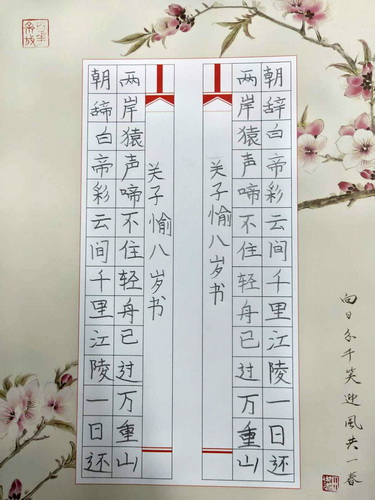 向日分千笑迎風共一春
朝辞白帝彩云间千里江陵一日还
两岸猿声啼不住轻舟已过万重山
关子愉八岁书
关子愉八岁书
两岸猿声啼不住轻舟已过万重山
朝辞白帝彩云间千里江陵一日还